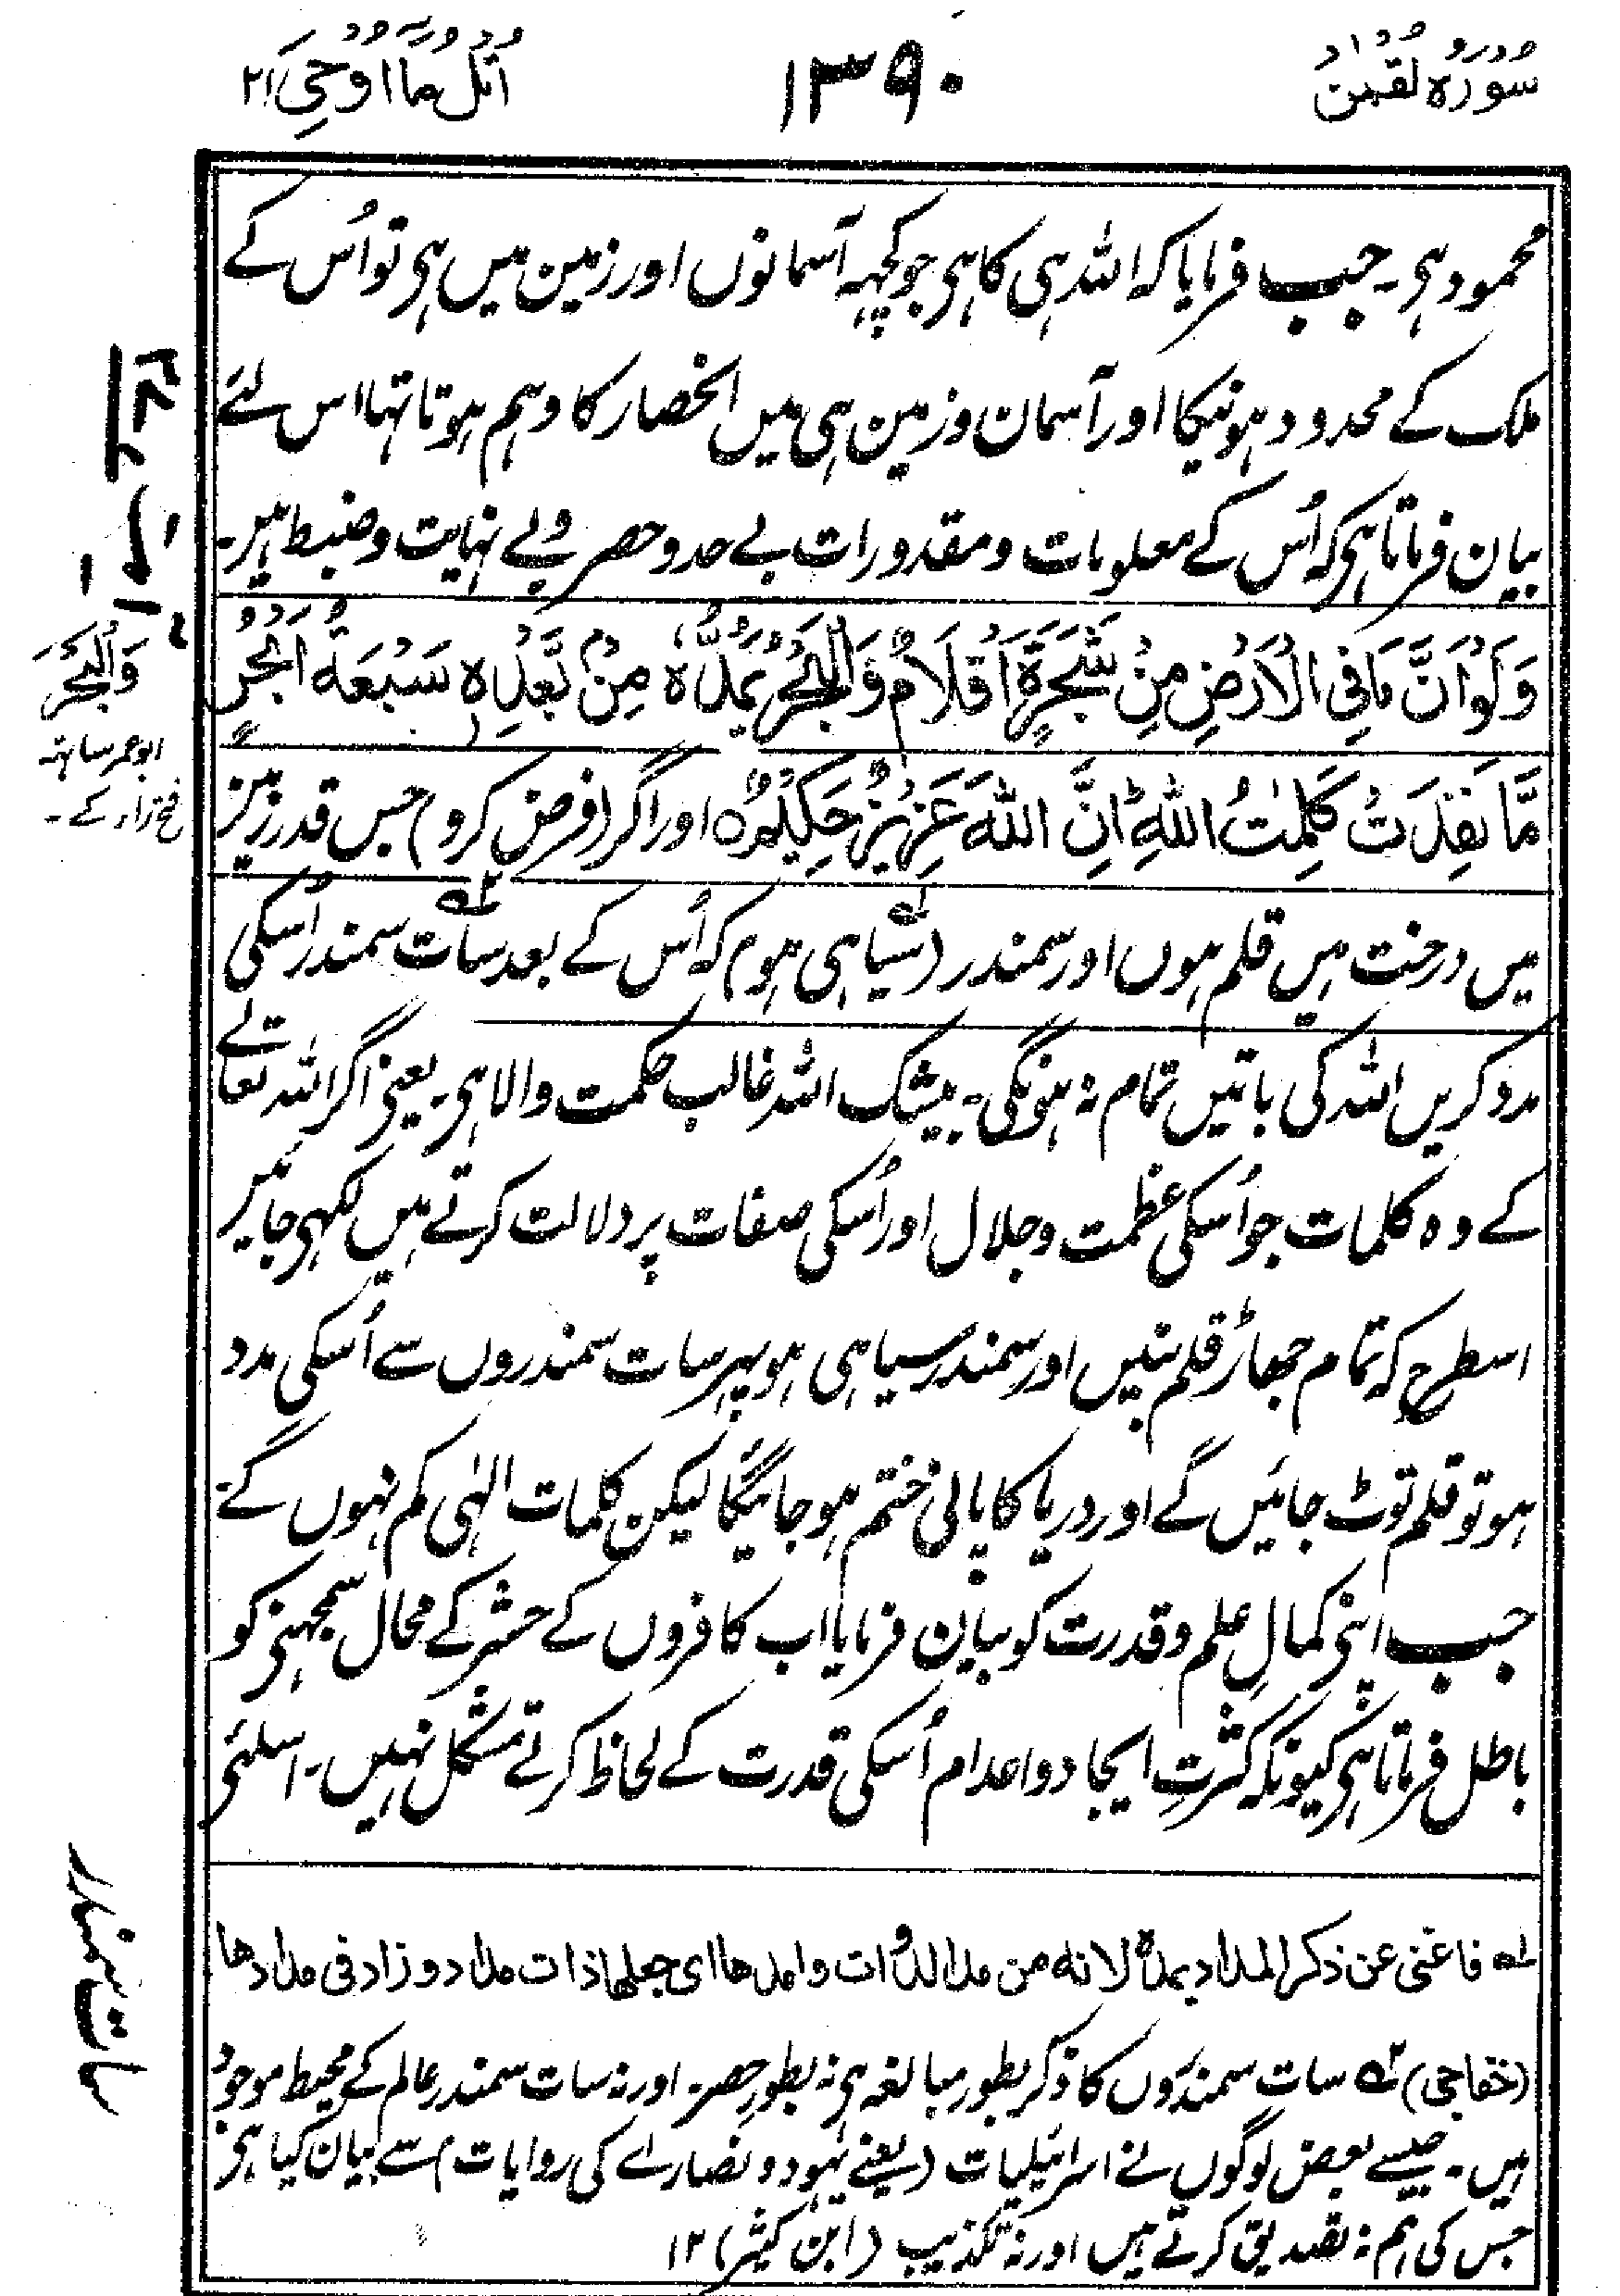 سُوْرَةُ لُقْمٰنُ
۱۳۹۰
اُتْلُ مَآ اُوْحِیَ ۲۱
محمود ہی۔ جب فرمایا کہ اللہ ہی کا ہی جو کچہہ آسمانوں اور زمین میں ہی تو اُس کے
ملک کے محدود ہونیکا اور آسمان وزمین ہی میں انحصار کا وہم ہوتا تہا اس لئے
بیان فرماتا ہی کہ اُس کے معلومات ومقدورات بے حد وحصر وبے نہایت وضبط ہیں۔
وَلَوْ اَنَّ مَا فِی الْاَرْضِ مِنْ شَجَرَةٍ اَقْلَامٌ وَّالْبَحْرُ یَمُدُّهٗ مِنْۢ بَعْدِهٖ سَبْعَةُ اَبْحُرٍ
مَّا نَفِدَتْ كَلِمٰتُ اللّٰهِ ؕ اِنَّ اللّٰهَ عَزِیْزٌ حَكِیْمٌ ه اور اگر (فرض کرو) جس قدر زمین
میں درخت ہیں قلم ہوں اور سمندر (سیاہی ہو) کہ اُس کے بعد سات سمندر اُسکی
مدد کریں اللہ کی باتیں تمام نہ ہونگی۔ بیشک اللہ غالب حکمت والا ہی۔ یعنی اگر اللہ تعالے
کے وہ کلمات جو اُسکی عظمت وجلال اور اُسکی صفات پر دلالت کرتے ہیں لکہی جائیں
اسطرح کہ تمام جھاڑ قلم بنیں اور سمندر سیاہی ہو پہر سات سمندروں سے اُسکی مدد
ہو تو قلم ٹوٹ جائیں گے اور دریا کا پانی ختم ہو جائیگا لیکن کلمات الٰہی کم نہوں گے۔
جب اپنی کمالِ علم وقدرت کو بیان فرمایا اب کافروں کے حشر کے محال سمجہنی کو
باطل فرماتا ہی کیونکہ کثرتِ ایجاد واعدام اُسکی قدرت کے لحاظ کرتے مشکل نہیں۔ اسلئی
وَالْبَحْرَ
ابو عمر ساتہ
فتح راء کے۔
سات سمندر
لہ فاغنی عن ذکر المداد یمدہ لانه من مد الدوات وامدها ای جعلها ذات مداد وزاد فی مدادها
(خفاجی) ٢ہ سات سمندروں کا ذکر بطور مبالغہ ہی نہ بطور حصر۔ اور نہ سات سمندر عالم کے محیط موجود
ہیں۔ جیسے بعض لوگوں نے اسرائیلیات (یعنے یہود ونصارے کی روایات) سے بیان کیا ہی
جس کی ہم نہ تصدیق کرتے ہیں اور نہ تکذیب (ابن کثیر) ۱۲